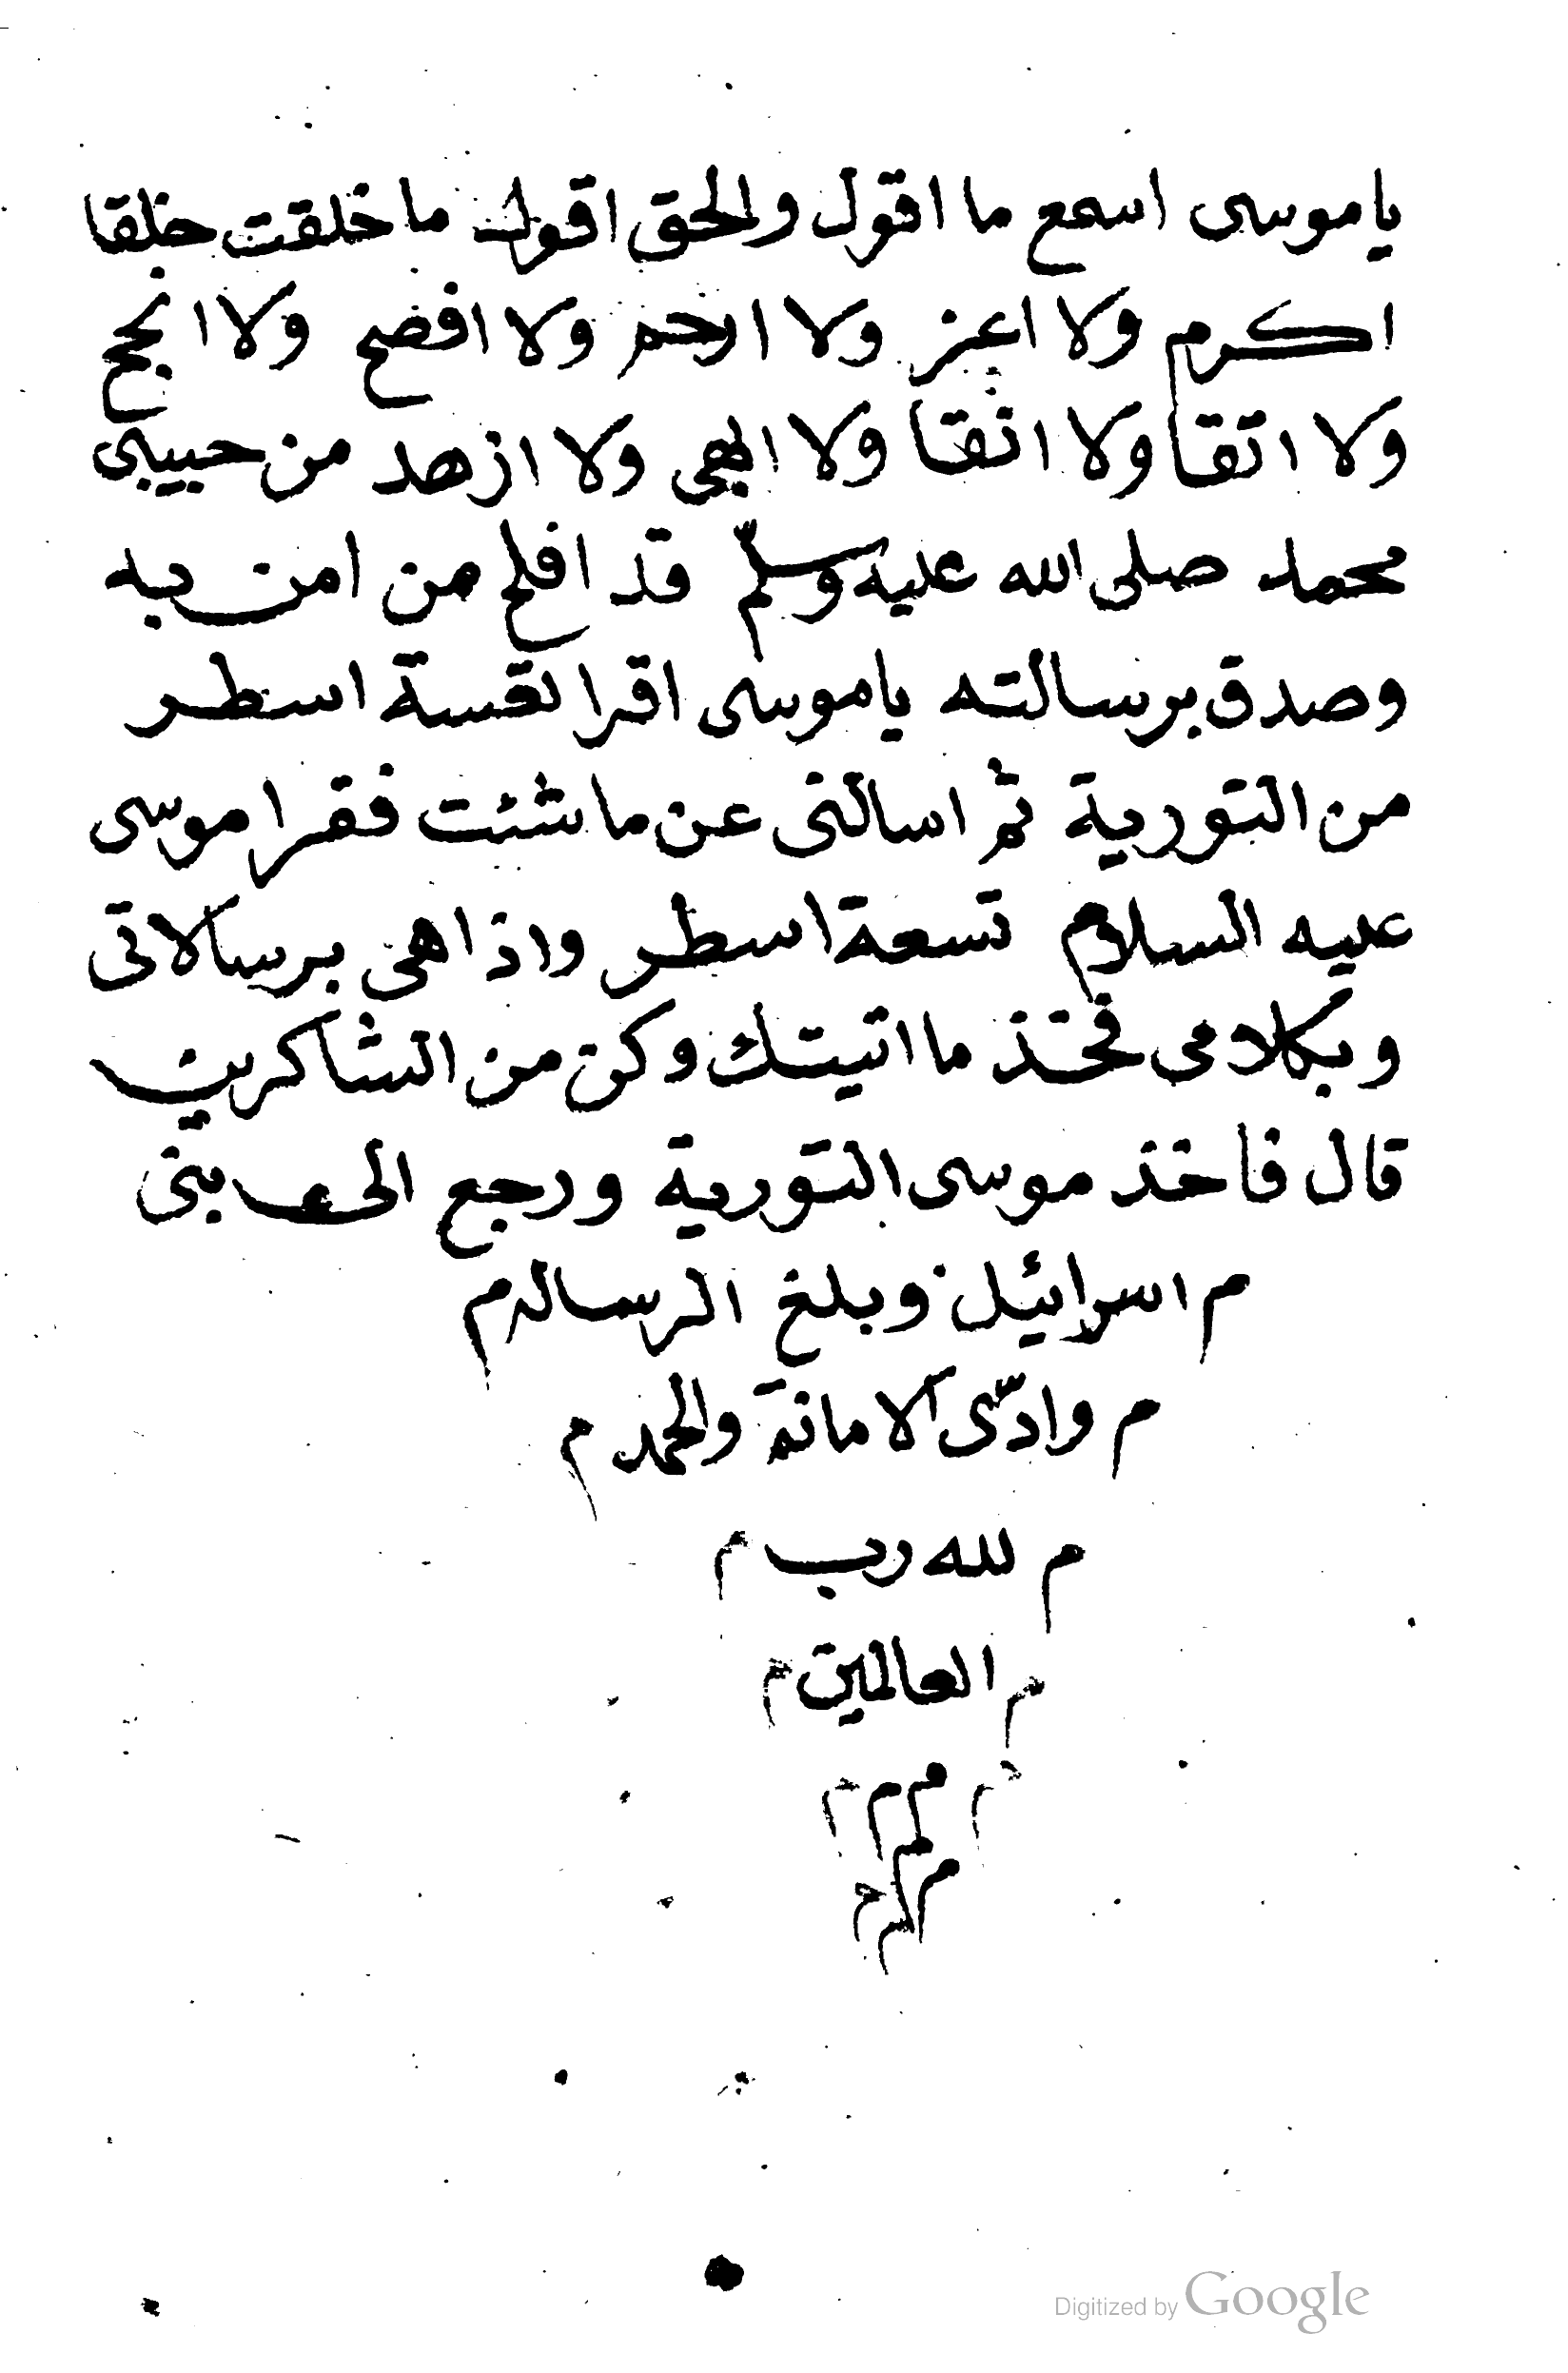 ياموسى اسمع ما اقول والحق اقول ما خلقت خلقا
اكرم ولا اعز ولا ارحم ولا افضح ولا انجح
ولا اتقا ولا انقا ولا ابهى ولا ازهد من حبيبى
محمد صلى الله عليه وسلم قد افلح من امن به
وصدق برسالته ياموسى اقرا تقسة اسطر
من التورية ثم اسالنى عن ما شئت فقرا موسى
عليه السلام تسعة اسطر واذا هى برسالاتى
وبكلامى فخذ ما اتيتك وكن من الشاكرين
قال فاخذ موسى التورية ورجع الى بنى
م اسرائيل وبلغ الرساله م
م وادّى الامانة والحمد م
م لله رب م
م العالمين م
م م م م
م م م
Digitized by Google